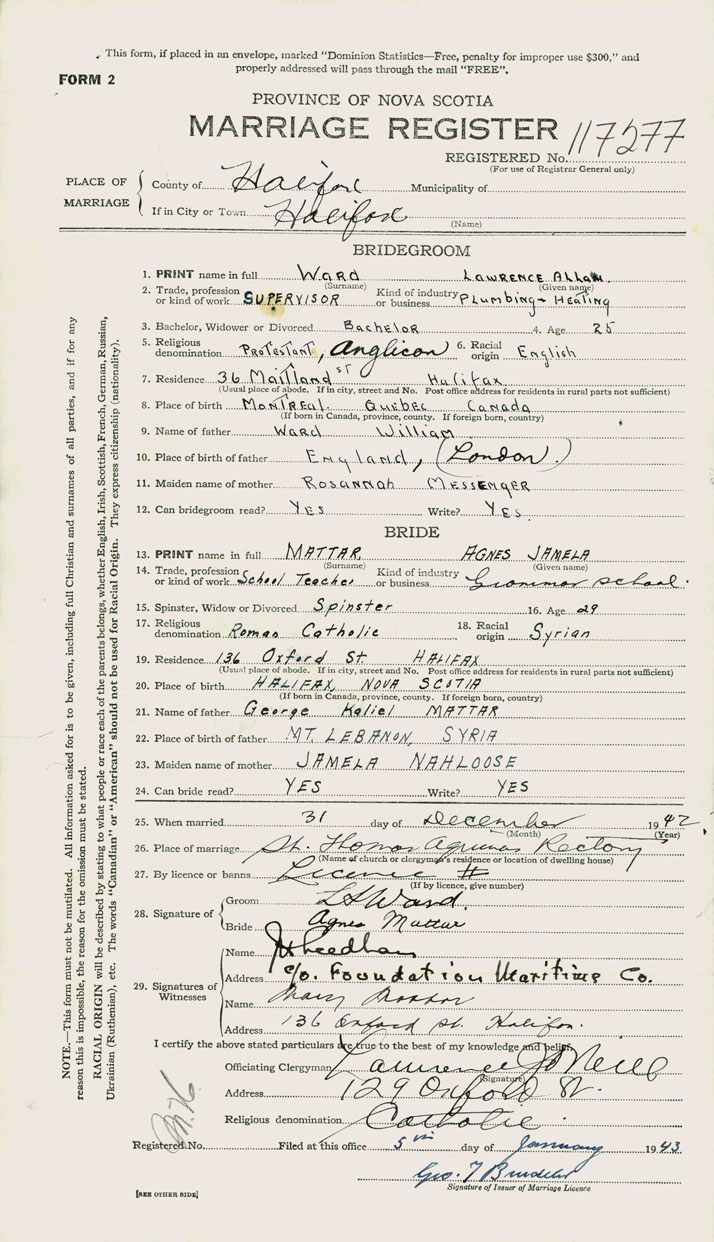 This form, if placed in an envelope, marked "Dominion Statistics—Free, penalty for improper use $300," and
properly addressed will pass through the mail "FREE".
FORM 2
PROVINCE OF NOVA SCOTIA
MARRIAGE REGISTER 117277
REGISTERED No.
(For use of Registrar General only)
PLACE OF MARRIAGE
County of Halifax Municipality of
If in City or Town Halifax
(Name)
BRIDEGROOM
1. PRINT name in full WARD LAWRENCE ALLAN
(Surname) (Given name)
2. Trade, profession or kind of work SUPERVISOR Kind of industry or business Plumbing - Heating
3. Bachelor, Widower or Divorced BACHELOR 4. Age 25
5. Religious denomination PROTESTANT, Anglican 6. Racial origin English
7. Residence 36 Maitland ST Halifax
(Usual place of abode. If in city, street and No. Post office address for residents in rural parts not sufficient)
8. Place of birth MONTREAL QUEBEC CANADA
(If born in Canada, province, county. If foreign born, country)
9. Name of father WARD WILLIAM
10. Place of birth of father ENGLAND, (London)
11. Maiden name of mother ROSANNAH MESSENGER
12. Can bridegroom read? YES Write? YES
BRIDE
13. PRINT name in full MATTAR AGNES JAMELA
(Surname) (Given name)
14. Trade, profession or kind of work School Teacher Kind of industry or business Grammar school.
15. Spinster, Widow or Divorced Spinster 16. Age 29
17. Religious denomination Roman Catholic 18. Racial origin Syrian
19. Residence 136 Oxford St. HALIFAX
(Usual place of abode. If in city, street and No. Post office address for residents in rural parts not sufficient)
20. Place of birth HALIFAX, NOVA SCOTIA
(If born in Canada, province, county. If foreign born, country)
21. Name of father George Kaliel MATTAR
22. Place of birth of father MT. LEBANON, SYRIA
23. Maiden name of mother JAMELA NAHLOOSE
24. Can bride read? YES Write? YES
25. When married 31 day of December 1942
(Month) (Year)
26. Place of marriage St. Thomas Aquinas Rectory
(Name of church or clergyman's residence or location of dwelling house)
27. By licence or banns Licence #
(If by licence, give number)
28. Signature of
Groom L A Ward.
Bride Agnes Mattar
29. Signatures of Witnesses
Name
Address c/o. Foundation Maritime Co.
Name Mary
Address 136 Oxford St. Halifax.
I certify the above stated particulars are true to the best of my knowledge and belief.
Officiating Clergyman Lawrence J O'Neill
(Signature)
Address 129 Oxford St.
Religious denomination Catholic.
Registered No. Filed at this office 5th day of January 1943
Geo. T
Signature of Issuer of Marriage Licence
[SEE OTHER SIDE]
NOTE.—This form must not be mutilated. All information asked for is to be given, including full Christian and surnames of all parties, and if for any
reason this is impossible, the reason for the omission must be stated.
RACIAL ORIGIN will be described by stating to what people or race each of the parents belongs, whether English, Irish, Scottish, French, German, Russian,
Ukrainian (Ruthenian), etc. The words "Canadian" or "American" should not be used for Racial Origin. They express citizenship (nationality).